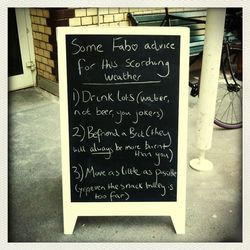 Some Fab♡ advice
for this scorching
weather
1) Drink lots (water,
not beer, you jokers)
2) Befriend a Brit (they
will always be more burnt
than you)
3) Move as little as possible
(yep even the snack trolley is
too far)